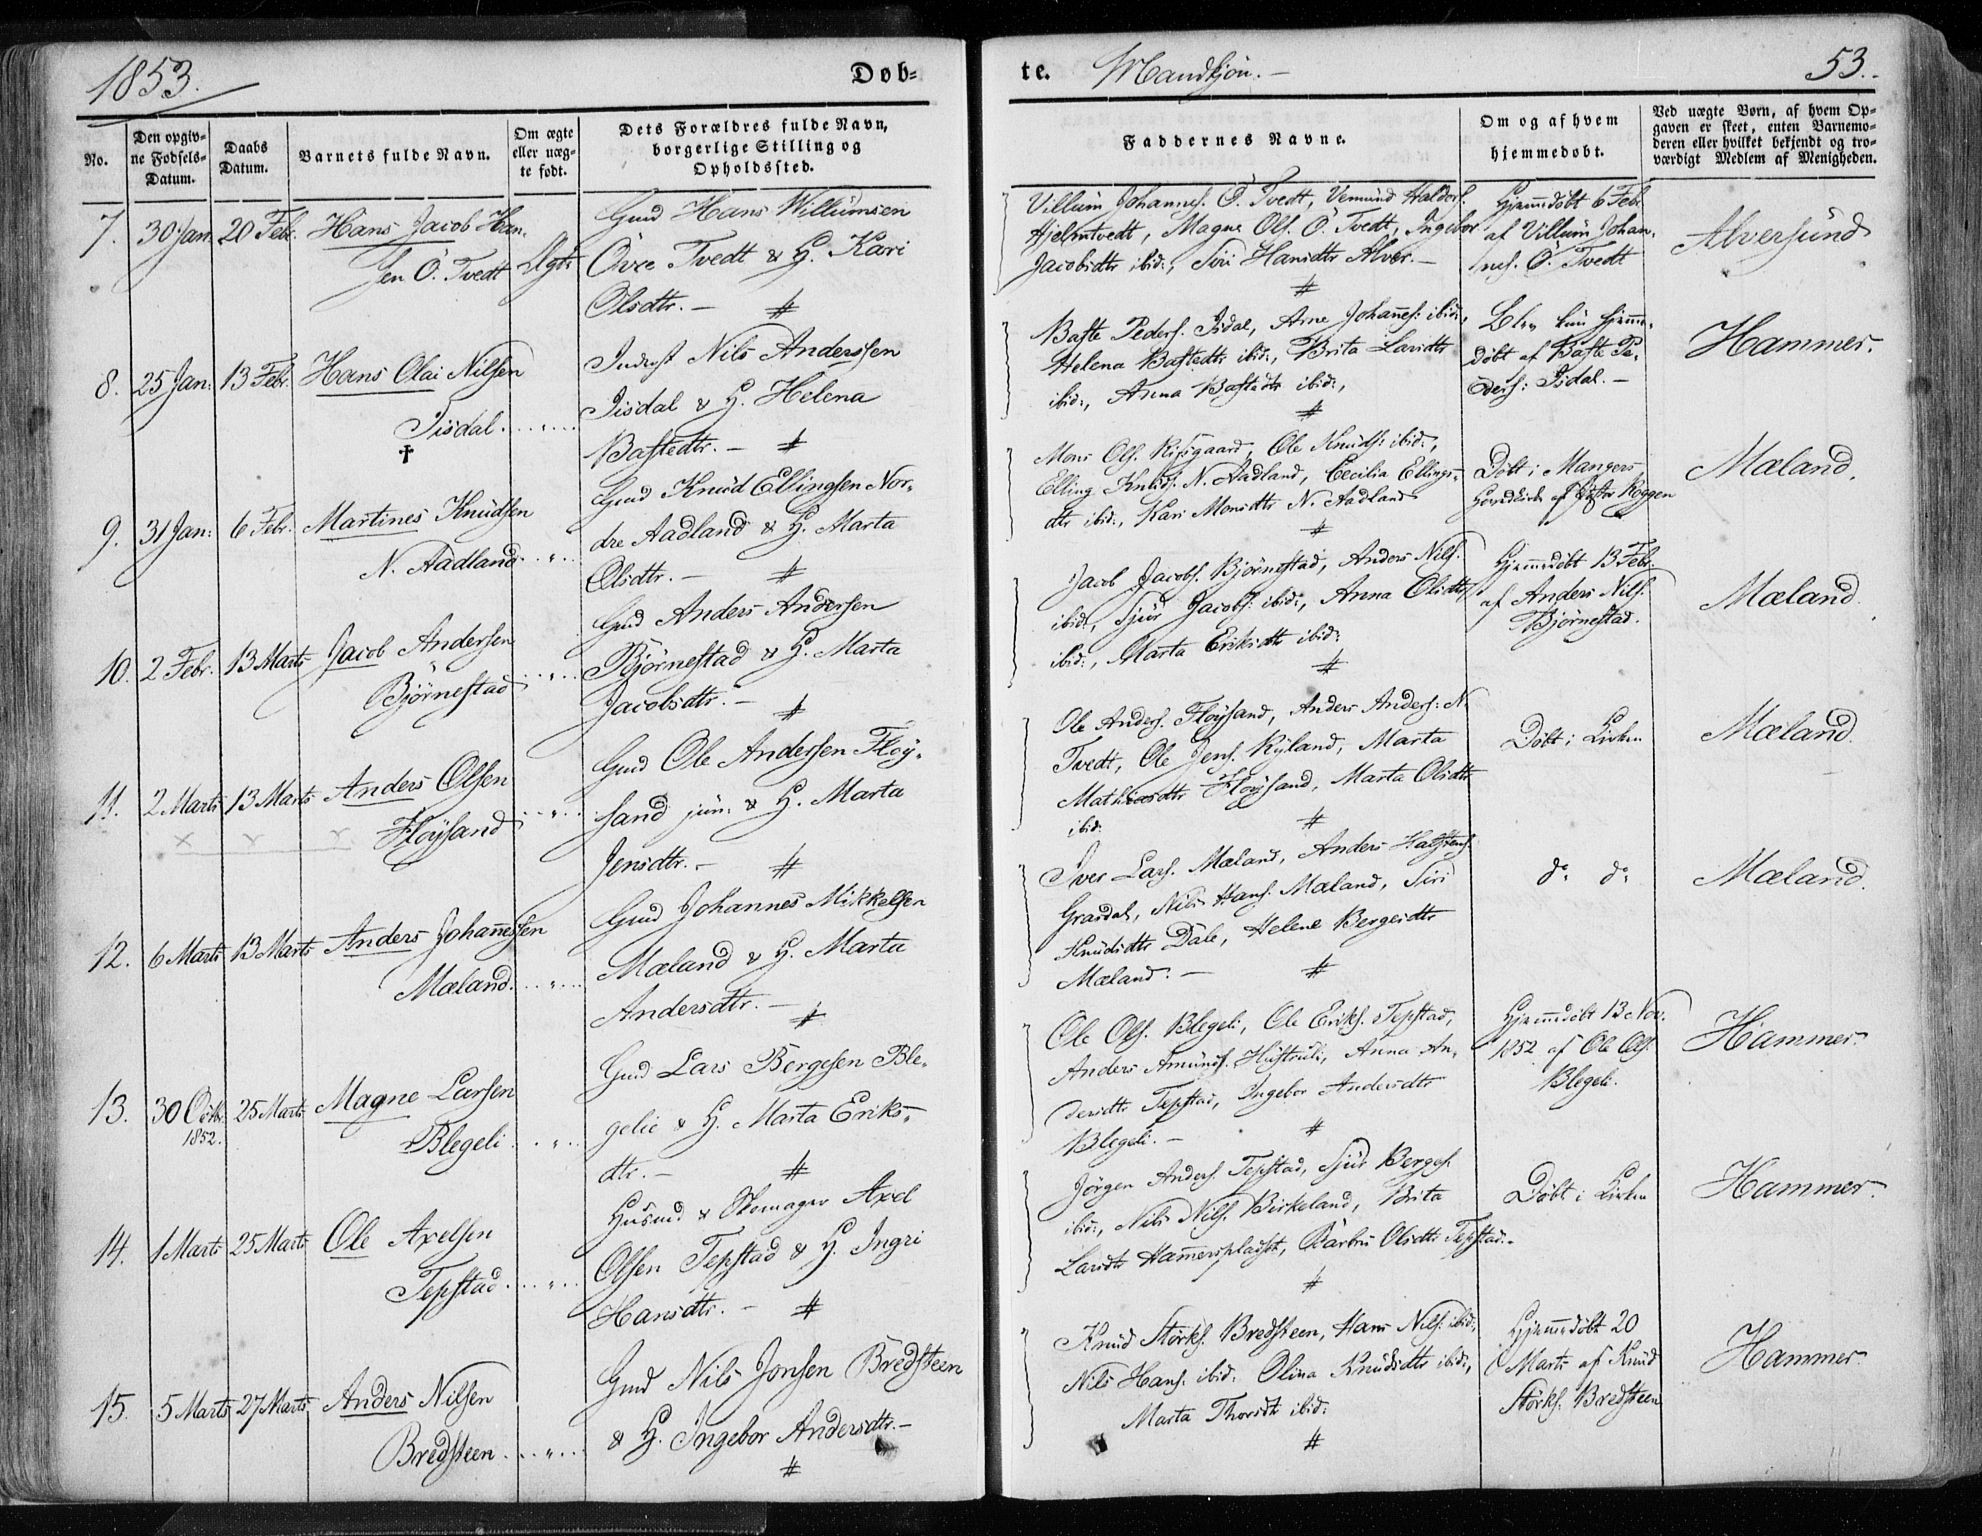 1853.
Døb-
te. Mandkjøn. —
53.
No.
Den opgiv-
ne Fødsels-
Datum.
Daabs
Datum.
Barnets fulde Navn.
Om ægte
eller uæg-
te født.
Dets Forældres fulde Navn,
borgerlige Stilling og
Opholdssted.
Faddernes Navne.
Om og af hvem
hjemmedøbt.
Ved uægte Børn, af hvem Op-
gaven er skeet, enten Barnemo-
deren eller hvilket bekjendt og tro-
værdigt Medlem af Menigheden.
7. 30 Jan. 20 Febr. Hans Jacob Han-
sen Ö. Tvedt Ægte
Gmd Hans Willumsen
Övre Tvedt & H. Kari
Olsdtr. —
Villum Johannes. Ö. Tvedt, Vemund Haldors.
Hjelmtvedt, Magne Ols. Ö. Tvedt, Ingebor
Jacobsdtr ibid:, Siri Hansdtr Alver. —
Hjemmedöbt 6 Febr.
af Villum Johan-
nes. Ö. Tvedt
Alversund
8. 25 Jan: 13 Febr. Hans Olai Nilsen
Iisdal
†
Inderst Nils Anderssen
Iisdal & H. Helena
Bastedtr. —
Baste Peders. Isdal, Arne Johannes: ibid:,
Helena Bastedtr ibid:, Brita Larsdtr
ibid:, Anna Bastedtr ibid:,
Blev kun hjemme-
döbt af Baste Pe-
ders: Isdal. —
Hammer.
9. 31 Jan: 6 Febr. Martines Knudsen
N. Aadland
Gmd Knud Ellingsen Nor-
dre Aadland & H. Marta
Olsdtr. —
Mons Ols. Risgaard, Ole Knuds: ibid:,
Elling Knuds: N. Aadland, Cecilia Ellings-
dtr ibid:, Kari Monsdtr N. Aadland
Döbt i Mangers
Hovedkirke af Roggen
Mæland.
10. 2 Febr. 13 Marts Jacob Andersen
Björnestad
Gmd Anders Andersen
Björnestad & H. Marta
Jacobsdtr. —
Jacob Jacobs. Björnestad, Anders Nils.
ibid:, Sjur Jacobs: ibid:, Anna Olsdtr
ibid:, Marta Eriksdtr ibid:
Hjemmedöbt 13 Febr.
af Anders Nils.
Björnestad.
Mæland.
11. 2 Marts 13 Marts Anders Olsen
Flöysand
Gmd Ole Andersen Flöy-
sand jun: & H. Marta
Jensdtr. —
Ole Anders. Flöysand, Anders Anders: N.
Tvedt, Ole Jens. Ryland, Marta
Mathiasdtr Flöysand, Marta Olsdtr
ibid:
Döbt i Kirken
Mæland.
12. 6 Marts 13 Marts Anders Johannessen
Mæland.
Gmd Johannes Mikkelsen
Mæland & H. Marta
Andersdtr. —
Iver Lars. Mæland, Anders Halstens.
Grasdal, Nils Hans. Mæland, Siri
Knudsdtr Dale, Helene Bergesdtr
Mæland. —
do do
Mæland.
13. 30 Octbr. 25 Marts Magne Larsen
1852.
Blegeli
Gmd Lars Bergesen Ble-
gelie & H. Marta Eriks-
dtr. —
Ole Ols. Blegeli, Ole Eriks. Tepstad,
Anders Amunds. Hustruli, Anna An-
dersdtr Tepstad, Ingebor Andersdtr
Blegeli. —
Hjemmedöbt 13 Nov.
1852 af Ole Ols.
Blegeli.
Hammer.
14. 1 Marts 25 Marts Ole Axelsen
Tepstad
Husmd & Skomager Axel
Olsen Tepstad & H. Ingri
Hansdtr. —
Jörgen Anders. Tepstad, Sjur Berges.
ibid:, Nils Nils. Birkeland, Brita
Larsdtr Hamersplads, Barbru Olsdtr Tepstad. —
Döbt i Kirken
Hammer.
15. 5 Marts 27 Marts Anders Nilsen
Bredsteen
Gmd Nils Jonsen Bredsteen
& H. Ingebor Andersdtr. —
Knud Störks. Bredsteen, Hans Nils: ibid:,
Nils Hans. ibid: Olina Knudsdtr ibid:,
Marta Thorsdtr ibid:
Hjemmedöbt 20
Marts af Knud
Störks. Bredsteen
Hammer.